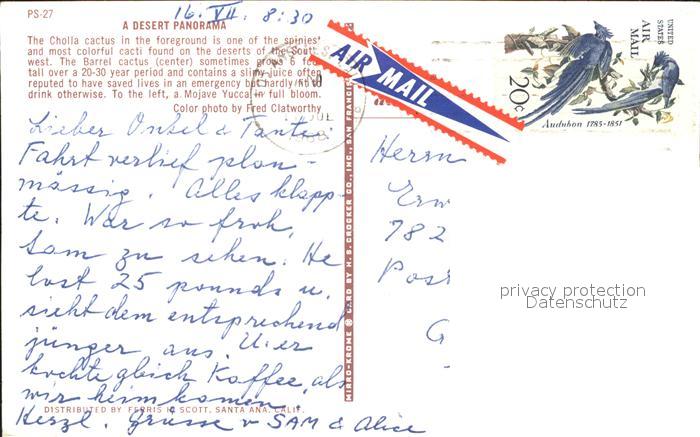 PS-27
16. VII. 8:30
A DESERT PANORAMA
The Cholla cactus in the foreground is one of the spiniest
and most colorful cacti found on the deserts of the South-
west. The Barrel cactus (center) sometimes grows 6 feet
tall over a 20-30 year period and contains a slimy juice often
reputed to have saved lives in an emergency but hardly fit to
drink otherwise. To the left, a Mojave Yucca in full bloom.
Color photo by Fred Clatworthy
Lieber Onkel & Tante.
Fahrt verlief plan-
mässig. Alles klapp-
te. War so froh,
Sam zu sehen. He
lost 25 pounds u.
sieht dem entsprechend
jünger aus. U. er
kochte gleich Kaffee, als
wir heimkamen.
Herzl. Grüsse v SAM & Alice
DISTRIBUTED BY FERRIS H. SCOTT, SANTA ANA, CALIF.
MIRRO-KROME ® CARD BY H. S. CROCKER CO., INC., SAN FRANCISCO
AIR MAIL
UNITED
STATES
AIR
MAIL
20c
Audubon 1785-1851
Herrn
Erw
782
Post
G
privacy protection
Datenschutz